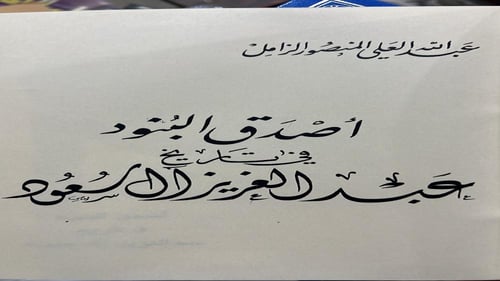 عبد الله العلي المنصور الزامل
أصدق البنود
في تاريخ
عبد العزيز آل سعود